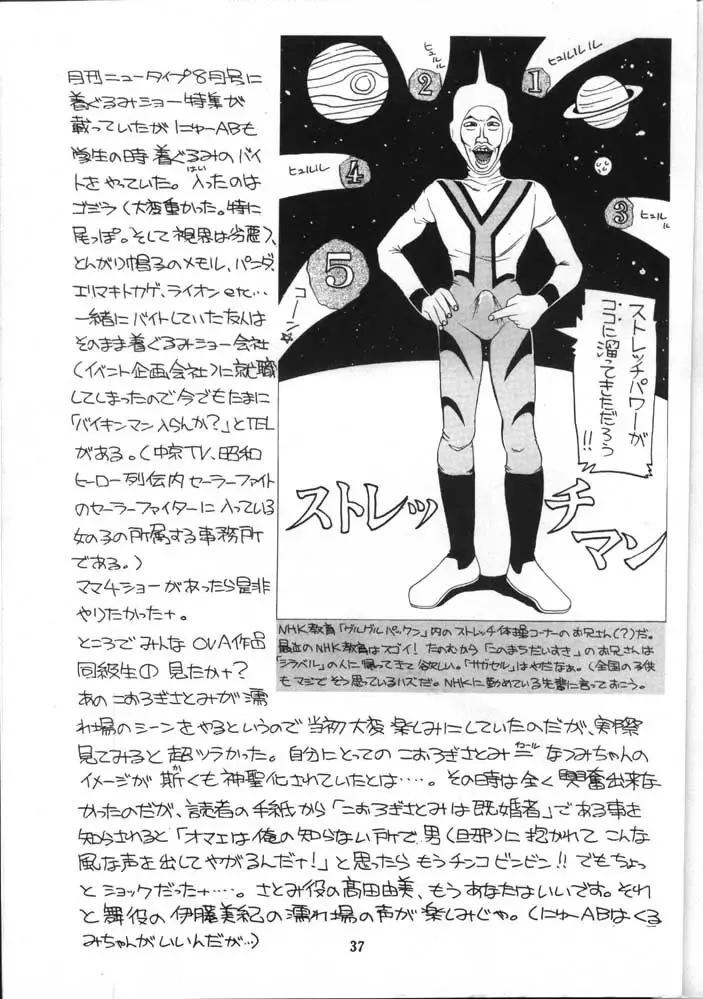 月刊ニュータイプ8月号に
着ぐるみショー特集が
載っていたがにゅーABも
学生の時着ぐるみのバイ
トをやっていた。入ったのは
はい
ゴジラ(大変重かった。特に
尾っぽ。そして視界は劣悪)、
とんがり帽子のメモル、パンダ、
エリマキトカゲ、ライオンetc…
一緒にバイトしていた友人は
そのまま着ぐるみショー会社
(イベント企画会社)に就職
してしまったので今でもたまに
「バイキンマン入らんか?」とTEL
がある。(中京TV、昭和
ヒーロー列伝内セーラーファイト
のセーラーファイターに入っている
女の子の所属する事務所
である。)
ママ4ショーがあったら是非
やりたかった+。
ところでみんなOVA作品
同級生の見たか+?
あのこおろぎさとみが濡
れ場のシーンをやるというので当初大変楽しみにしていたのだが、実際
見てみると超ツラかった。自分にとってのこおろぎさとみ=なつみちゃんの
イコール
イメージが斯くも神聖化されていたとは‥‥。その時は全く興奮出来な
か
かったのだが、読者の手紙から「こおろぎさとみは既婚者」である事を
知らされると「オマエは俺の知らない所で男(旦那)に抱かれてこんな
風な声を出してやがるんだ+!」と思ったらもうチンコビンビン!!でもちょっ
とショックだった+‥‥。さとみ役の高田由美、もうあなたはいいです。それ
と舞役の伊藤美紀の濡れ場の声が楽しみじゃ。(にゅーABはくる
みちゃんがいいんだが…)
ヒュルル
2
ヒュルルル
1
ヒュルル
4
ヒュルル
3
5
コーン☆
ストレッチパワーが
ココに溜ってきただろう
!!
ストレッチ
マン
NHK教育「グルグルパックン」内のストレッチ体操コーナーのお兄さん(?)だ。
最近のNHK教育はスゴイ!たのむから「このまちだいすき」のお兄さんは
「シラベル」の人に帰ってきて欲しい。「サガセル」はやだなぁ。(全国の子供
もマジでそう思っているハズだ。NHKに勤めている先輩に言っておこう。
37